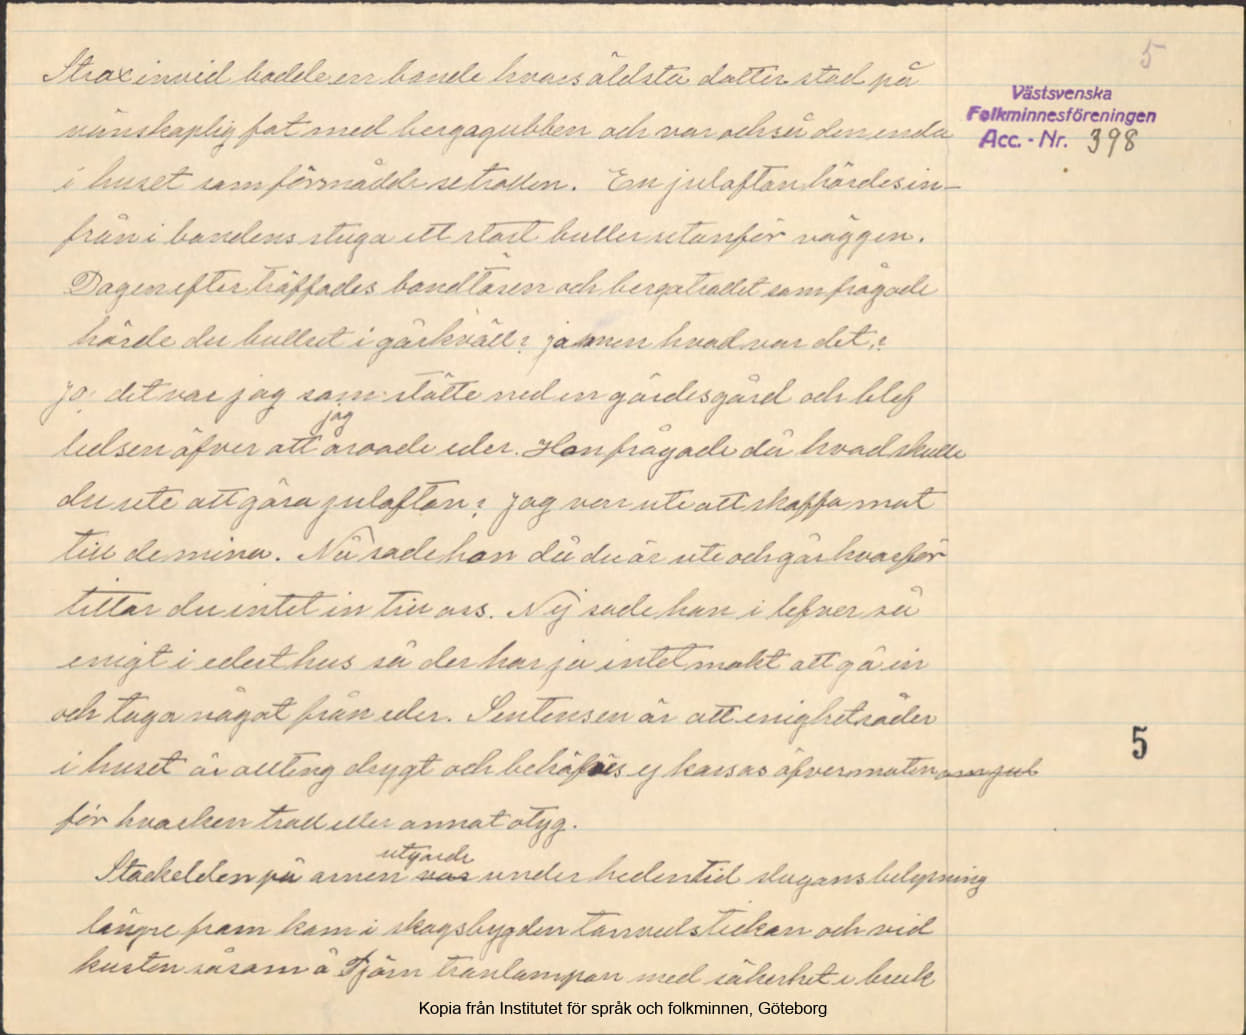 5
Strax invid bodde en bonde hvars äldsta dotter stod på
vänskaplig fot med bergagubben och var också den enda
i huset som förmådde se trollen. En julafton hördes in-
från i bondens stuga ett stort buller utanför väggen.
Dagen efter träffades bondtösen och bergatrollet som frågade
hörde du bullret i går kväll? ja men hvad var det?
Jo det var jag som stötte ned en gärdesgård och blef
ledsen öfver att jag oroade eder. Hon frågade då hvad skulle
du ute att göra julafton? Jag var ute att skaffa mat
till de mina. Nå sade hon då du är ute och går hvarför
tittar du intet in till oss. Nej sade han i lefver så
enigt i edert hus så der har ja intet makt att gå in
och taga något från eder. Sentensen är att enighet råder
i huset är allting drygt och behöfves ej korsas öfver maten om jul
för hvarken troll eller annat otyg.
Stockelden på arnen var utgjorde under hedentid stugans belysning
längre fram kom i skogsbygden torrvedstickan och vid
kusten såsom å Tjörn tranlampan med säkerhet i bruk
Västsvenska
Folkminnesföreningen
Acc. - Nr. 398
5
Kopia från Institutet för språk och folkminnen, Göteborg